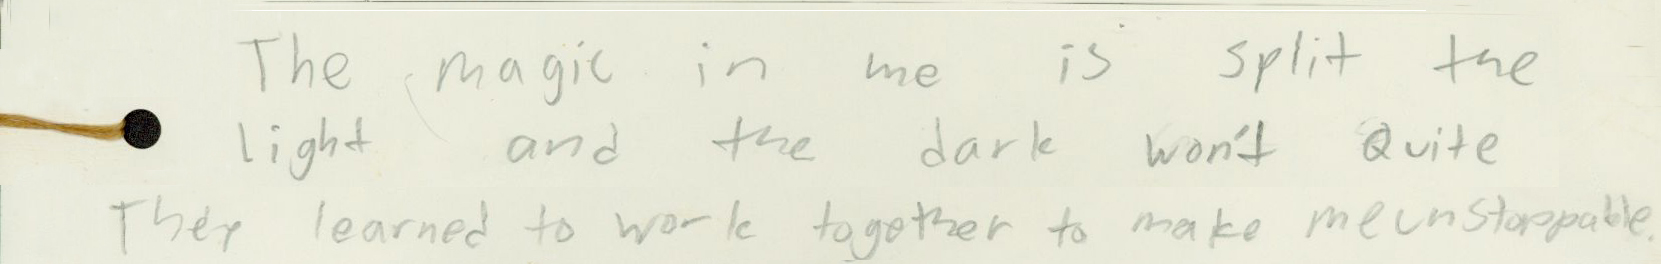 The magic in me is split the
light and the dark won't Quite
They learned to work together to make me unstoppable.